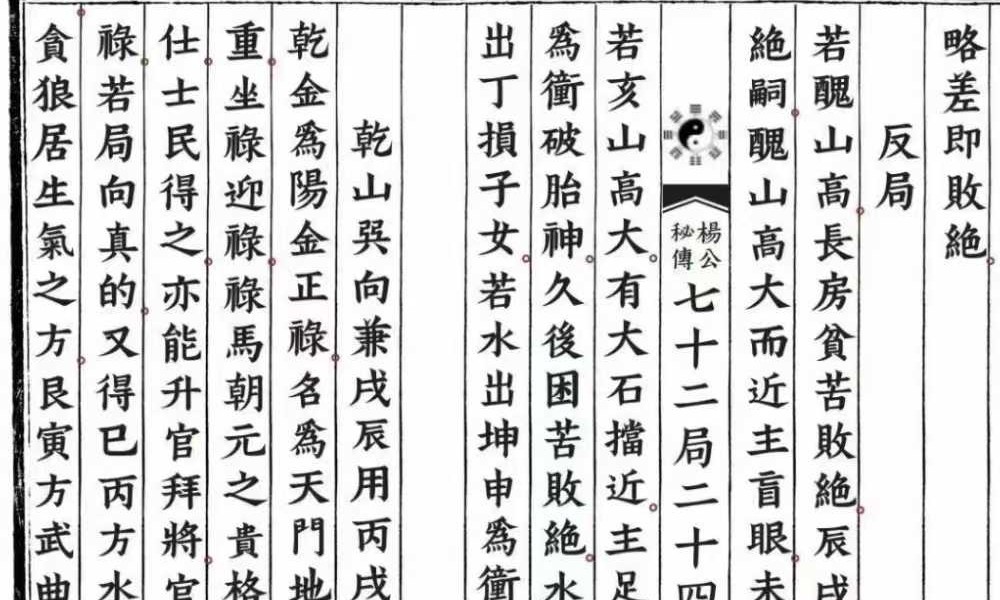 略差即敗絶
反局
若醜山高長房貧苦敗絶辰戌
絶嗣醜山高大而近主盲眼未
楊公秘傳七十二局二十四
若亥山高大有大石擋近主足
爲衝破胎神久後困苦敗絶水
出丁損子女若水出坤申爲衝
乾山巽向兼戌辰用丙戌
乾金爲陽金正祿名爲天門地
重坐祿迎祿祿馬朝元之貴格
仕士民得之亦能升官拜將官
祿若局向真的又得巳丙方水
貪狼居生氣之方艮寅方武曲